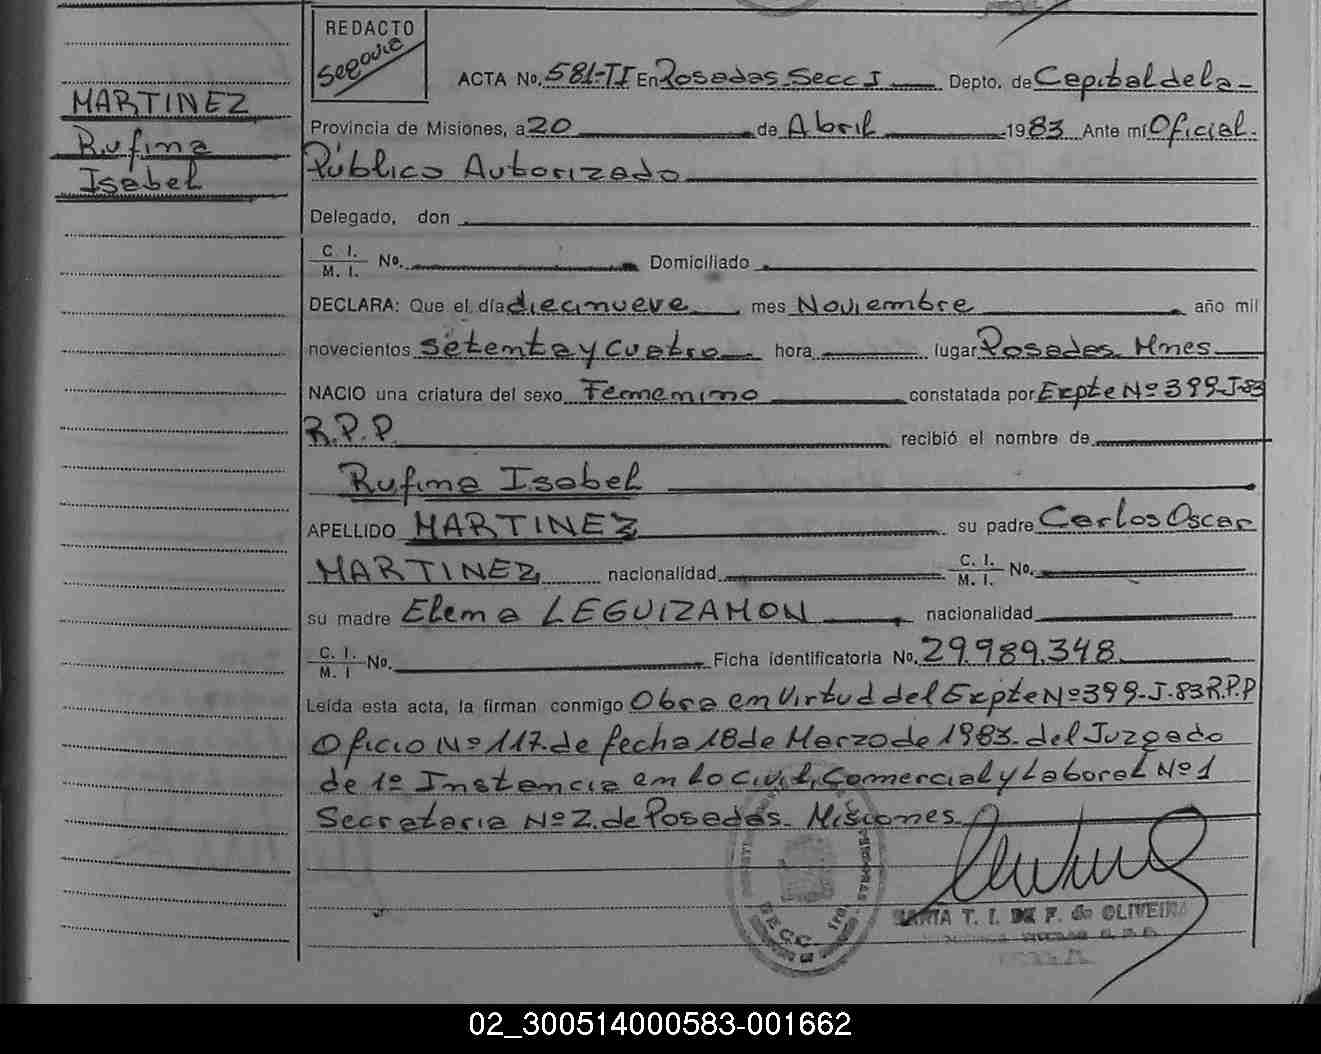 REDACTO
Segovia
ACTA No. 581-TI En Posadas Secc I Depto. de Capital de la
MARTINEZ
Rufina
Isabel
Provincia de Misiones, a 20 de Abril 1983 Ante mí Oficial
Público Autorizado
Delegado, don
C. I.
M. I. No. Domiciliado
DECLARA: Que el día diecinueve mes Noviembre año mil
novecientos setenta y cuatro hora lugar Posadas Mnes
NACIO una criatura del sexo Femenino constatada por Expte Nº 399-J-83
R.P.P. recibió el nombre de
Rufina Isabel
APELLIDO MARTINEZ su padre Carlos Oscar
MARTINEZ nacionalidad C. I. M. I. No.
su madre Elena LEGUIZAMON nacionalidad
C. I. M. I No. Ficha identificatoria No. 29.989.348
Leída esta acta, la firman conmigo Obra en Virtud del Expte Nº 399-J-83 R.P.P
Oficio Nº 117. de fecha 18 de Marzo de 1983. del Juzgado
de 1º Instancia en lo Civil, Comercial y Laboral Nº 1
Secretaria Nº 2. de Posadas. Misiones
SECC.
MARIA T. I. DE F. de OLIVEIRA
02_300514000583-001662